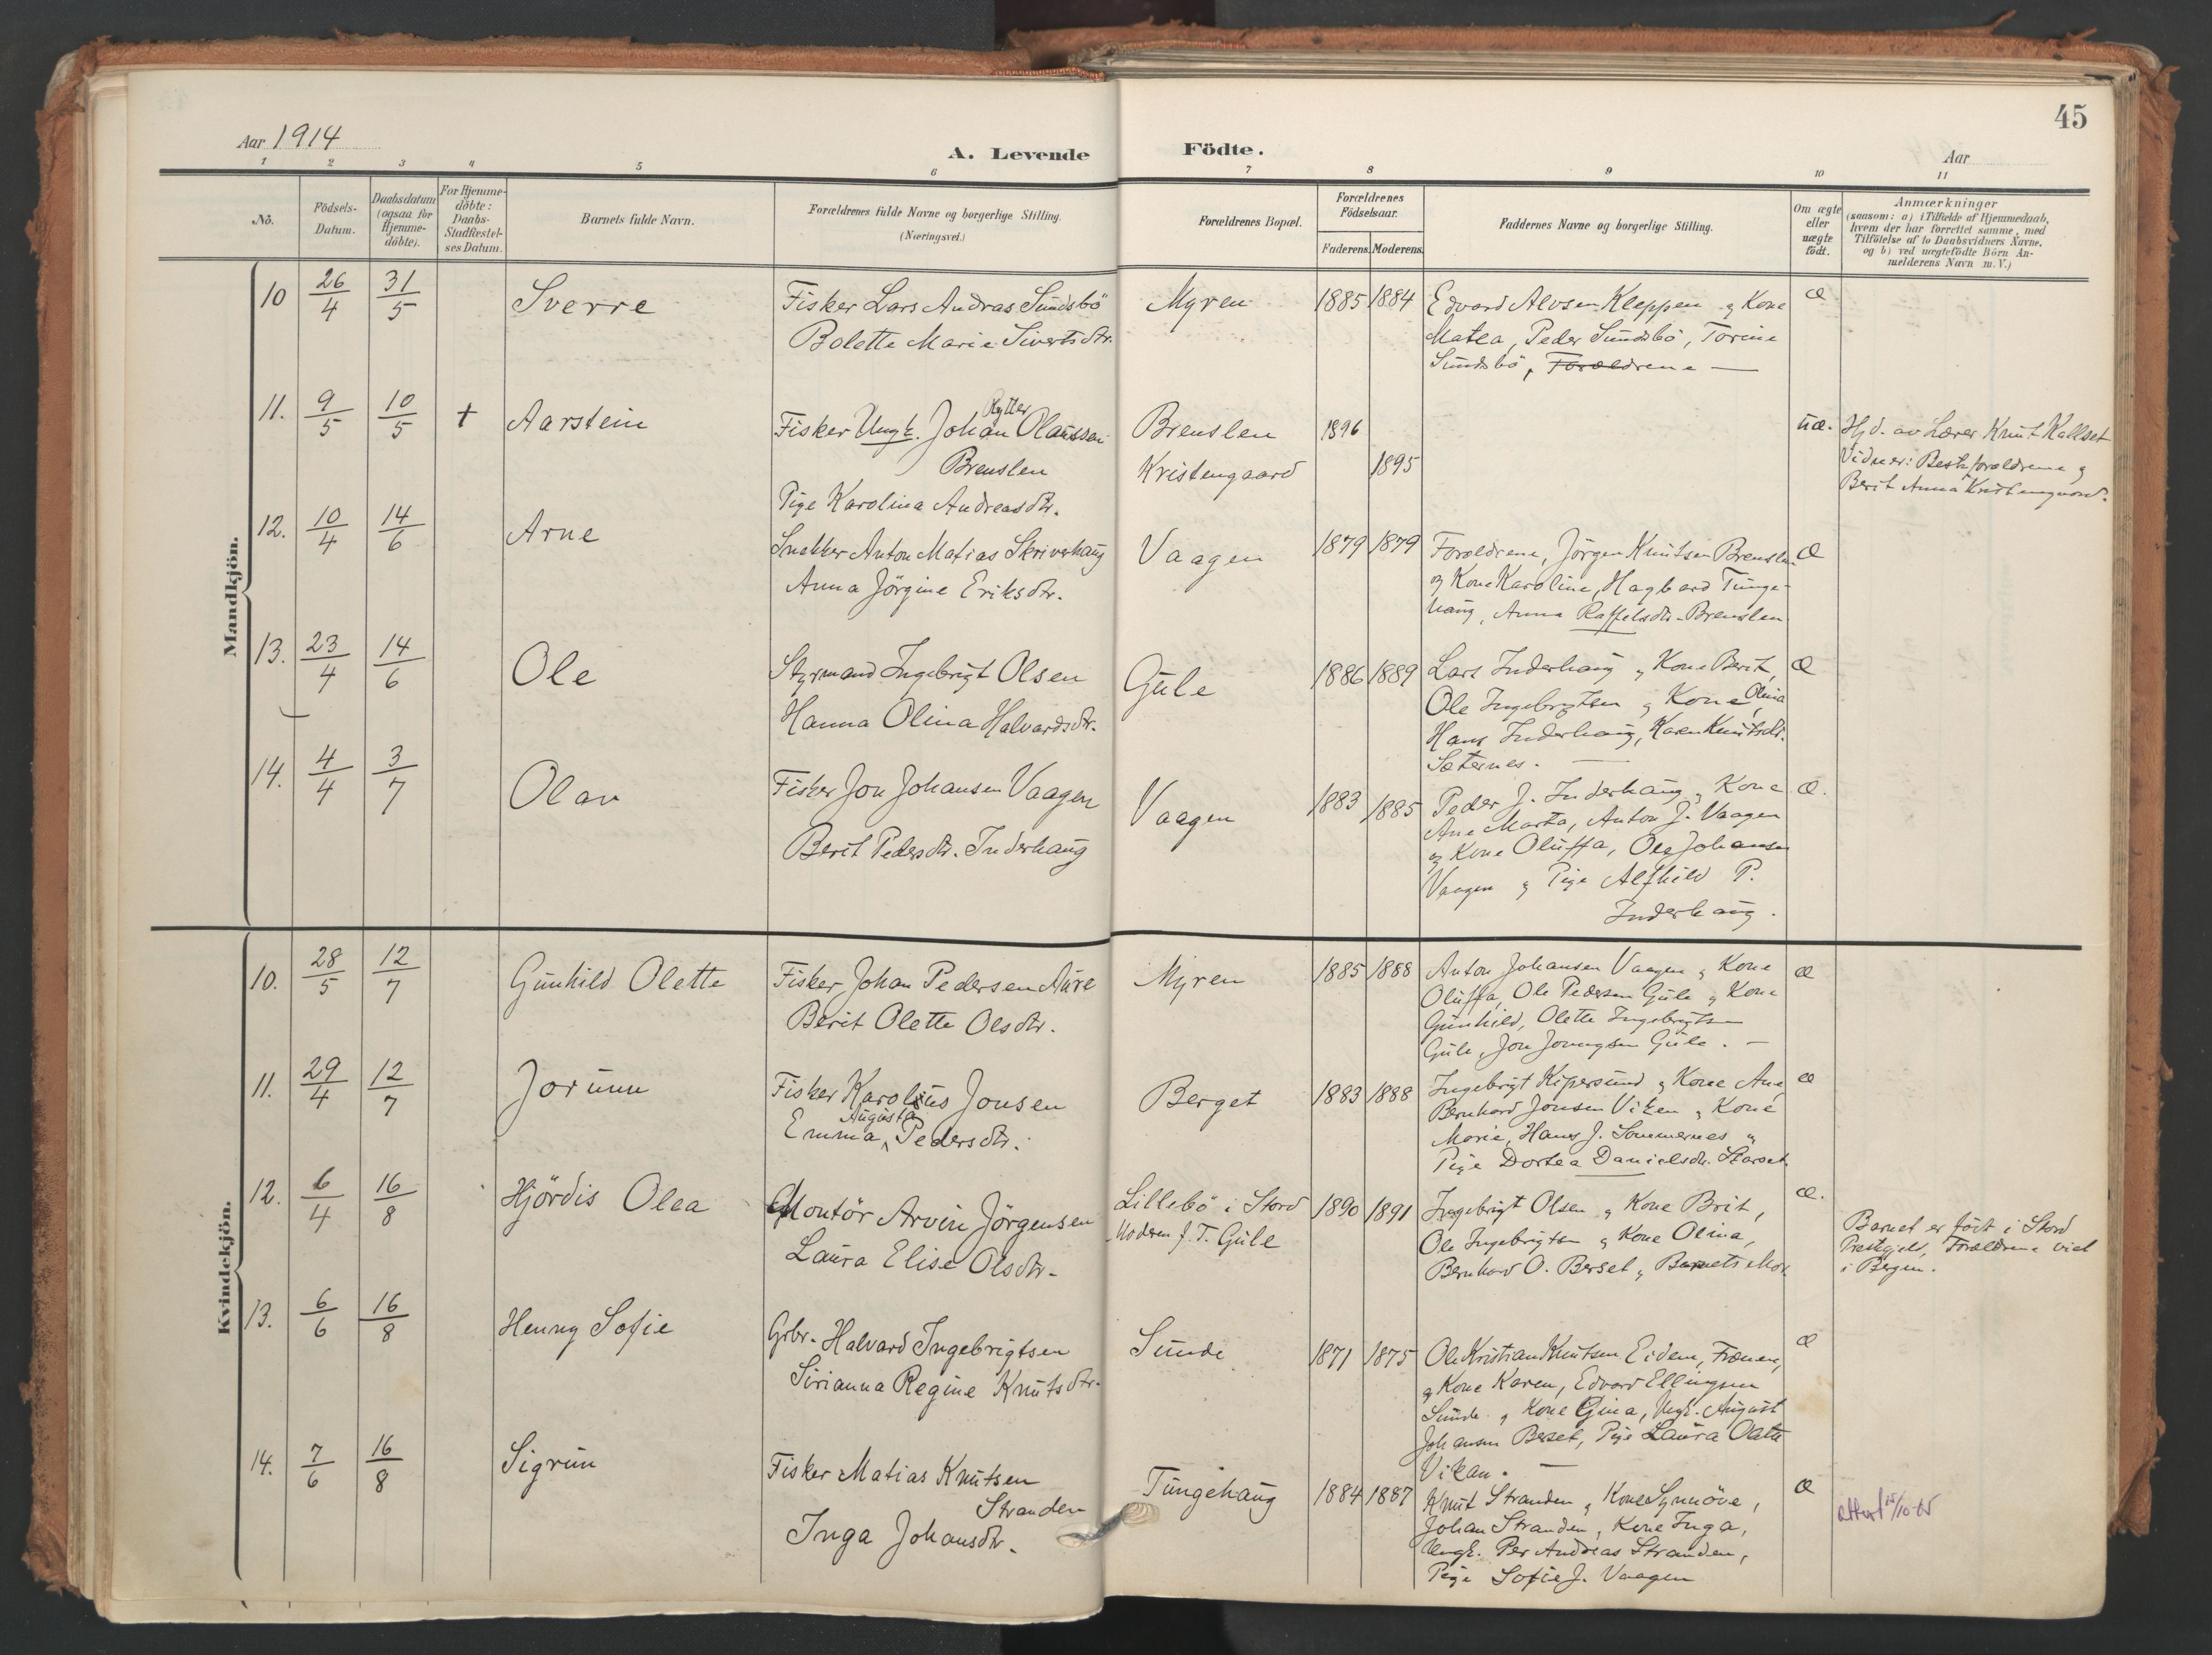 45
Aar 1914
A. Levende
Födte.
Aar
1 2 3 4 5 6 7 8 9 10 11
Nö.
Födsels-
Datum.
Daabsdatum
(ogsaa for
Hjemme-
döbte).
For Hjemme-
döbte:
Daabs-
Stadfæstel-
ses Datum.
Barnets fulde Navn.
Forældrenes fulde Navne og borgerlige Stilling.
(Næringsvei.)
Forældrenes Bopæl.
Forældrenes
Födselsaar.
Faderens. Moderens.
Faddernes Navne og borgerlige Stilling.
Om ægte
eller
uægte
födt.
Anmærkninger
(saasom: a) i Tilfælde af Hjemmedaab,
hvem der har forrettet samme, med
Tilföielse af to Daabsvidners Navne,
og b) ved uægtefödte Börn An-
melderens Navn m. V.)
Mandkjön.
10 26/4 31/5 Sverre
Fisker Lars Andras Sundsbö
Bolette Marie Sivertsdtr.
Myren 1885 1884
Edvard Alvsen Kleppen og Kone
Matea, Peder Sundsbö, Torine
Sundsbö, Forældrene —
æ
11. 9/5 10/5 + Aarstein
Fisker Ungk. Johan Olaussen
Brenslen
Pige Karolina Andreasdtr.
Brenslen 1896
Kristengaard 1895
uæ.
Hjd. av Lærer Knut Kallset
Vidner: Besteforældrene og
Berit Anna Kristengaard.
12. 10/4 14/6 Arne
Snekker Anton Matias Skrivehaug
Anna Jörgine Eriksdtr.
Vaagen 1879 1879
Forældrene, Jörgen Knutsen Brenslen
og Kone Karoline, Hagbard Tunge-
haug, Anna Raffelsdtr. Brenslen
æ
13. 23/4 14/6 Ole
Styrmand Ingebrigt Olsen
Hanna Olina Halvardsdtr.
Gule 1886 1889
Lars Inderhaug og Kone Berit,
Ole Ingebrigtsen og Kone Olina
Hans Inderhaug, Karen Knutsdtr.
Sæternes. —
æ
14. 4/4 3/7 Olav
Fisker Jon Johansen Vaagen
Berit Pedersdtr. Inderhaug
Vaagen 1883 1885
Peder J. Inderhaug og Kone
Ane Marta, Anton J. Vaagen
og Kone Oluffa, Ole Johansen
Vaagen og Pige Alfhild P.
Inderhaug.
æ.
Kvindekjön.
10. 28/5 12/7 Gunhild Olette
Fisker Johan Pedersen Aure
Berit Olette Olsdtr.
Myren 1885 1888
Anton Johansen Vaagen og Kone
Oluffa, Ole Pedersen Gule og Kone
Gunhild, Olette Ingebrigtsen
Gule, Jon Gule. —
æ
11. 29/4 12/7 Jorunn
Fisker Karolius Jonsen
Augusta
Emma, Pedersdtr.
Berget 1883 1888
Ingebrigt Kipersund og Kone Ane,
Bernhard Jonsen Viken og Kone
Marie, Hans J. Sommernes og
Pige Dortea Danielsdtr. Storset
æ
12. 6/4 16/8 Hjördis Olea
Montör Arvin Jörgensen
Laura Elise Olsdtr.
Lillebö i Stord
Moderen f. T. Gule
1890 1891
Ingebrigt Olsen og Kone Brit,
Ole Ingebrigtsen og Kone Olina,
Bernhard O. Berset og Barnets Mor.
æ.
Barnet er födt i Stord
Prestegjeld, Forældrene viet
i Bergen.
13. 6/6 16/8 Henny Sofie
Grbr. Halvard Ingebrigtsen
Sirianna Regine Knutsdtr.
Sunde 1871 1875
Ole Kristian Knutsen Eidem, Frænen,
og Kone Karen, Edvard Ellingsen
Sunde og Kone Gina, Ungk. August
Johansen Berset, Pige Laura Olette
Vikan. —
æ
14. 7/6 16/8 Sigrun
Fisker Matias Knutsen
Stranden
Inga Johansdtr.
Tungehaug 1884 1887
Knut Stranden og Kone Synnöve,
Johan Stranden, Kone Inga,
Ungk. Per Andreas Stranden,
Pige Sofie J. Vaagen
æ